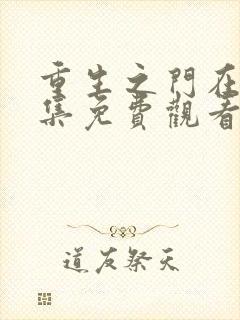 重生之門在
集免費觀看
道友祭天